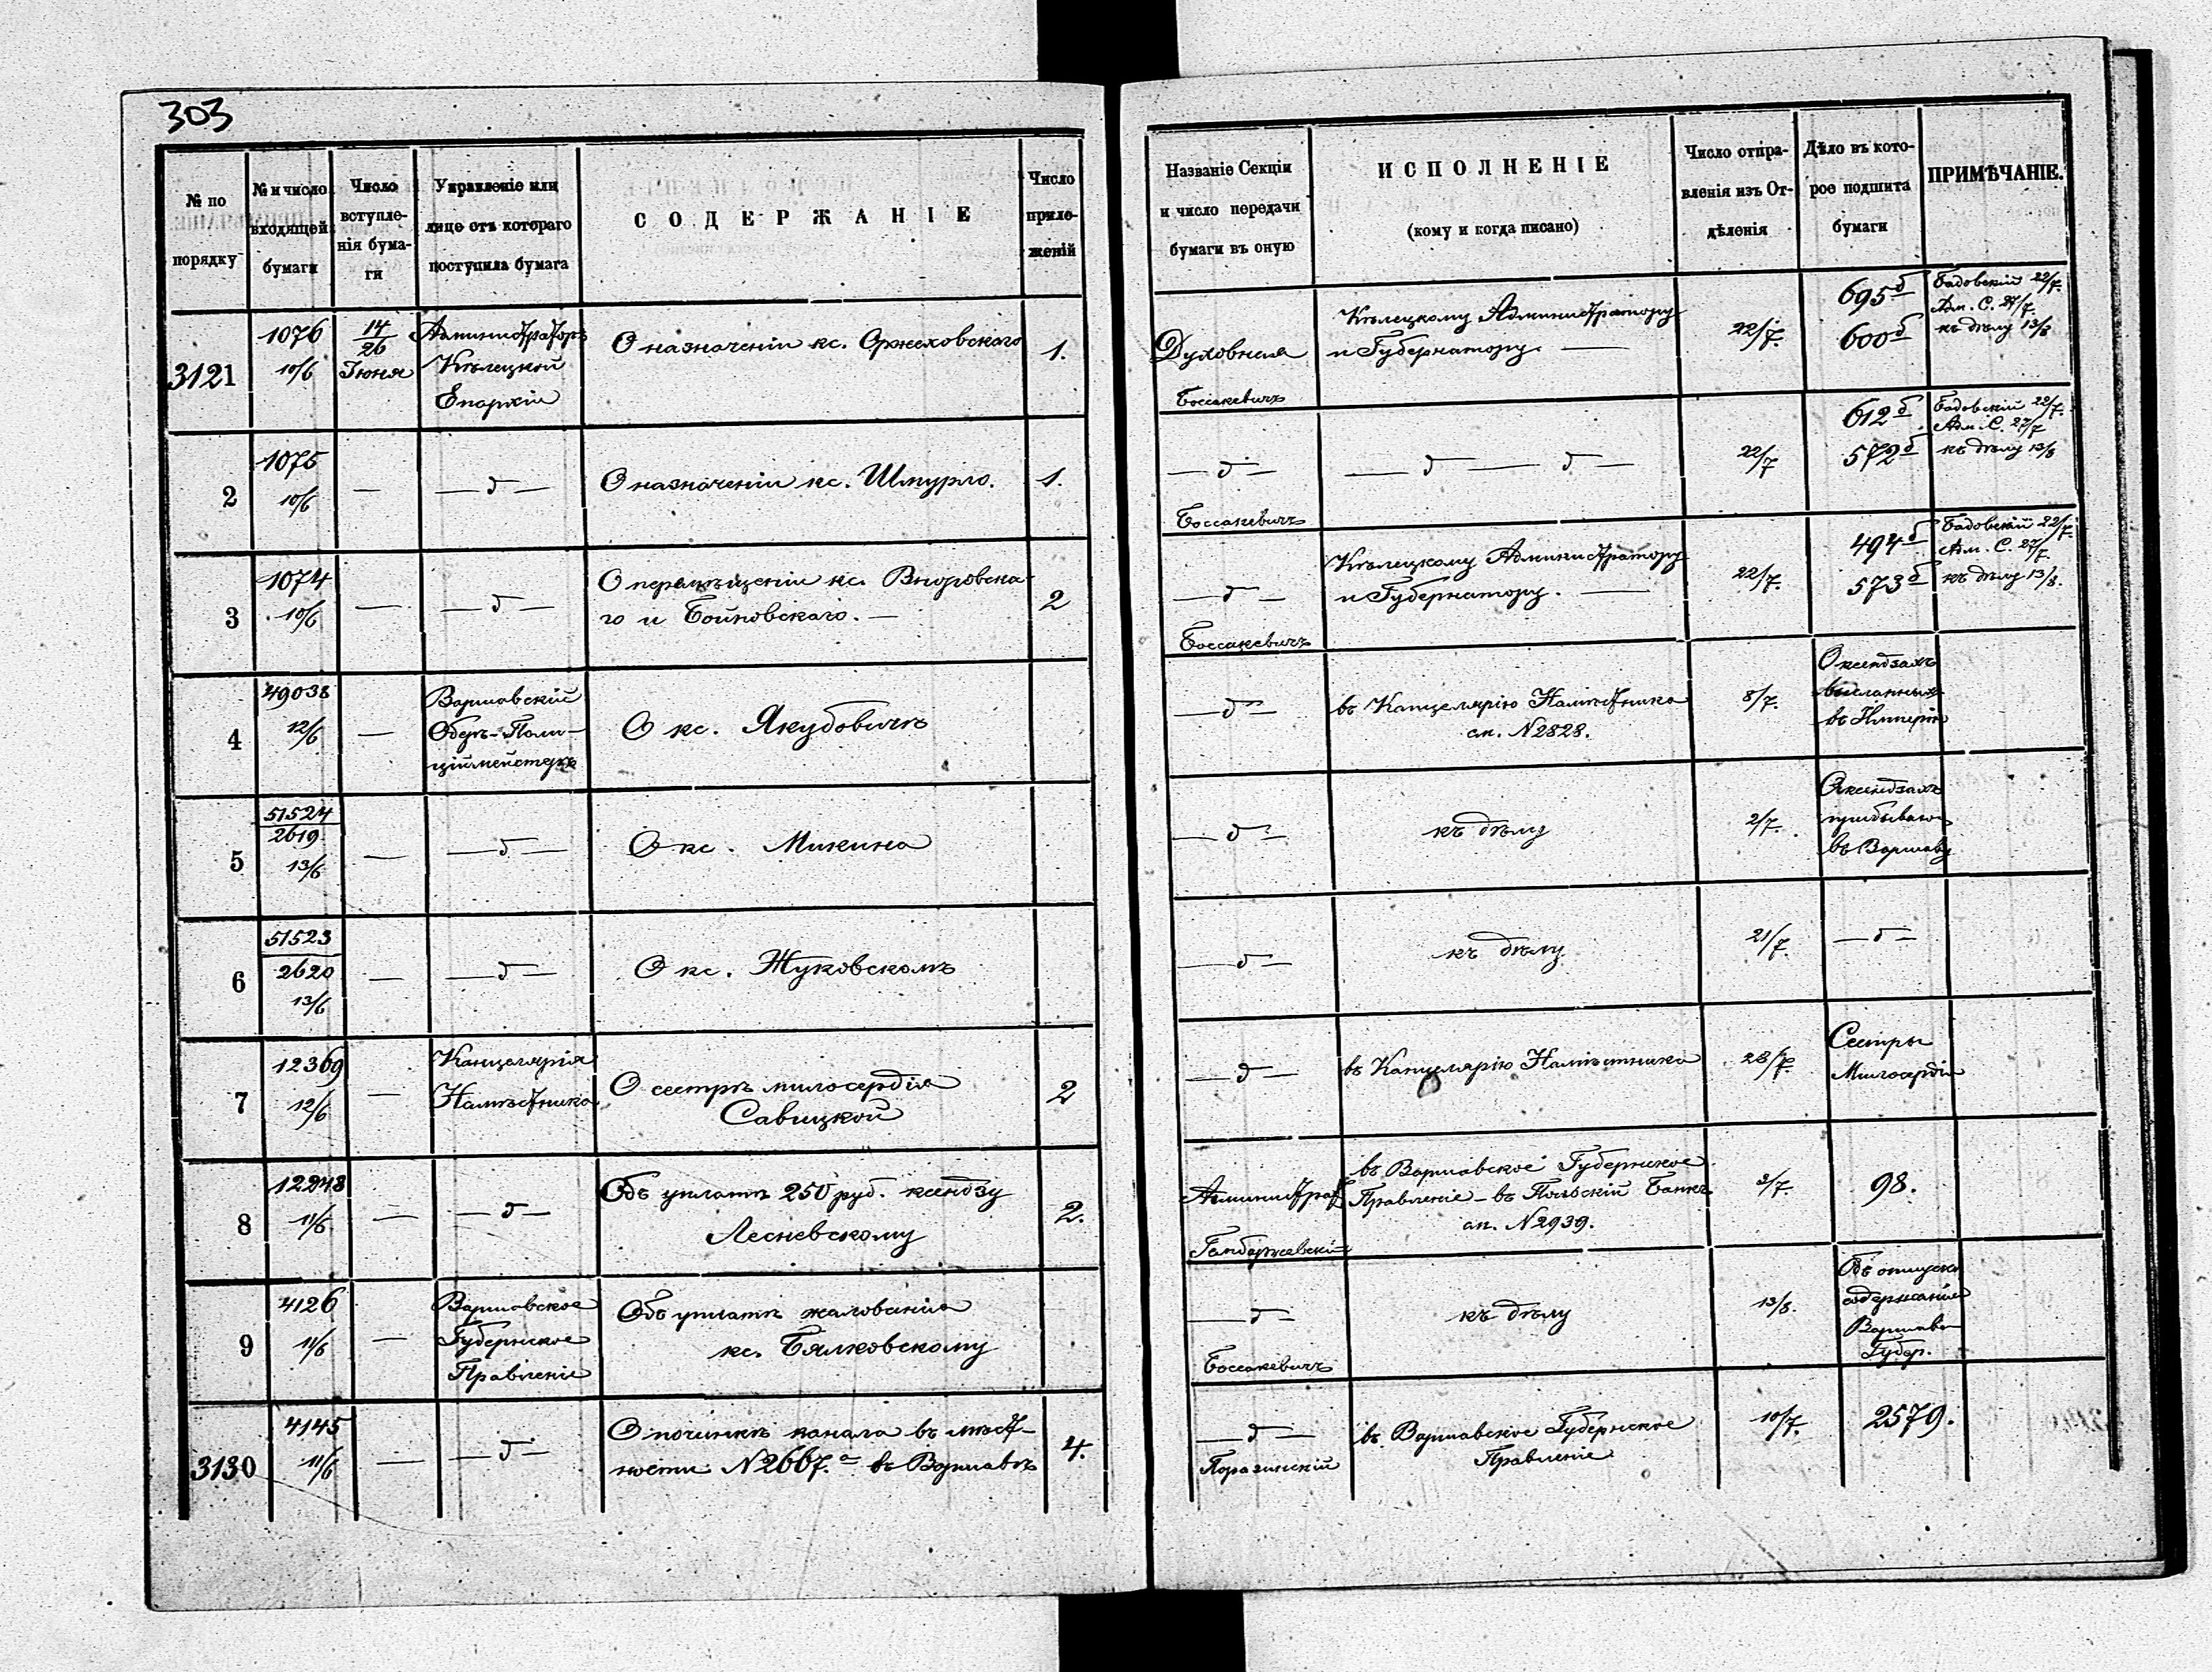 303
№ по порядку
№ и число входящей бумаги
Число вступле-нія бума-ги
Управленіе или лице отъ котораго поступила бумага
СОДЕРЖАНІЕ
Число прило-женій
Названіе Секціи и число передачи бумаги въ оную
ИСПОЛНЕНІЕ
(кому и когда писано)
Число отпра-вленія изъ От-дѣленія
Дѣло въ кото-рое подшита бумаги
ПРИМѢЧАНІЕ.
3121
1076
10/6
14/26
Іюня
Администраторъ
Кѣлецкой
Епархіи
О назначеніи кс. Оржеховскаго
1.
Духовная
Боссакевичъ
Кѣлецкому Администратору
и Губернатору. —
22/7.
695 б
600 б
Бадовскій 22/7.
Адм. С. 27/7.
къ дѣлу 13/8
2
1075
10/6
—
— д —
О назначеніи кс. Шмурло.
1.
— д —
Боссакевичъ
— д — — д —
22/7
612 б
572 б
Бадовскій 22/7.
Адм. С. 27/7
къ дѣлу 13/8
3
1074
10/6
—
— д —
О перемѣщеніи кс.
го и Войновскаго. —
2
— д —
Боссакевичъ
Кѣлецкому Администратору
и Губернатору. —
22/7.
494 б
573 б
Бадовскій 22/7.
Адм. С. 27/7.
къ дѣлу 13/8.
4
49038
12/6
—
Варшавскій
Оберъ-Поли-
ціймейстеръ
О кс. Якубовичѣ
— д —
въ Канцелярію Намѣстника
см. №2828.
8/7.
О ксендзахъ
высланныхъ
въ Имперію
5
51524
2619
13/6
—
— д —
О кс. Микина
— д —
къ дѣлу
2/7.
О ксендзахъ
въ Варшаву
6
51523
2620
13/6
—
— д —
О кс. Жуковскомъ
— д —
къ дѣлу
21/7.
— д —
7
12369
12/6
—
Канцелярія
Намѣстника
О сестрѣ милосердія
Савицкой
2
— д —
въ Канцелярію Намѣстника
28/7.
Сестры
Милосердія
8
12248
11/6
—
— д —
Объ уплатѣ 250 руб. ксендзу
Лесневскому
2.
Администрат
въ Варшавское Губернское
Правленіе — въ Польскій Банкъ
сл. №2939.
3/7.
98.
9
4126
11/6
—
Варшавское
Губернское
Правленіе
Объ уплатѣ жалованія
кс. Бялковскому
— д —
Боссакевичъ
къ дѣлу
13/8.
Объ отпускѣ
содержанія
Варшав.
Губер.
3130
4145
11/6
—
— д —
О починкѣ канала въ мѣст-
ности №2667.а въ Варшавѣ
4.
— д —
въ Варшавское Губернское
Правленіе
10/7.
2579.